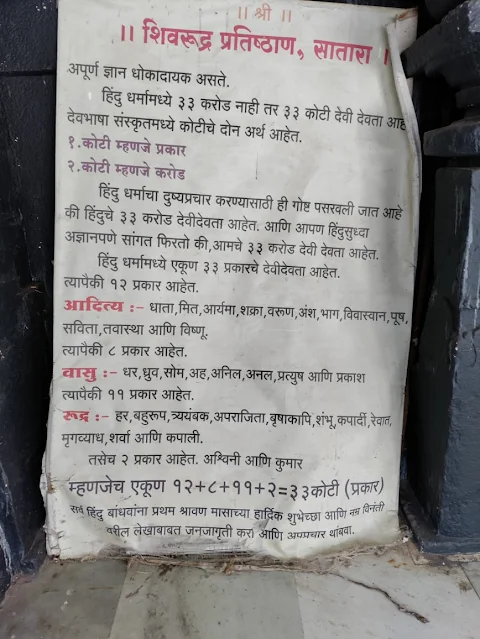 ।। श्री ।।
।। शिवरुद्र प्रतिष्ठाण, सातारा ।
अपूर्ण ज्ञान धोकादायक असते.
हिंदु धर्मामध्ये ३३ करोड नाही तर ३३ कोटी देवी देवता आहे
देवभाषा संस्कृतमध्ये कोटीचे दोन अर्थ आहेत.
१.कोटी म्हणजे प्रकार
२.कोटी म्हणजे करोड
हिंदु धर्माचा दुष्यप्रचार करण्यासाठी ही गोष्ट पसरवली जात आहे
की हिंदुचे ३३ करोड देवीदेवता आहेत. आणि आपण हिंदुसुध्दा
अज्ञानपणे सांगत फिरतो की,आमचे ३३ करोड देवी देवता आहेत.
हिंदु धर्मामध्ये एकूण ३३ प्रकारचे देवीदेवता आहेत.
त्यापैकी १२ प्रकार आहेत.
आदित्य :- धाता,मित,आर्यमा,शक्रा,वरूण,अंश,भाग,विवास्वान,पूष,
सविता,तवास्था आणि विष्णू.
त्यापैकी ८ प्रकार आहेत.
वासु :- धर,ध्रुव,सोम,अह,अनिल,अनल,प्रत्युष आणि प्रकाश
त्यापैकी ११ प्रकार आहेत.
रूद्र :- हर,बहुरूप,त्र्ययंबक,अपराजिता,बृषाकापि,शंभू,कपार्दी,रेवात,
मृगव्याध,शर्वा आणि कपाली.
तसेच २ प्रकार आहेत. अश्विनी आणि कुमार
म्हणजेच एकूण १२+८+११+२=३३कोटी (प्रकार)
सर्व हिंदु बांधवांना प्रथम श्रावण मासाच्या हार्दिक शुभेच्छा आणि नम्र विनंती
वरील लेखाबाबत जनजागृती करा आणि अपप्रचार थांबवा.